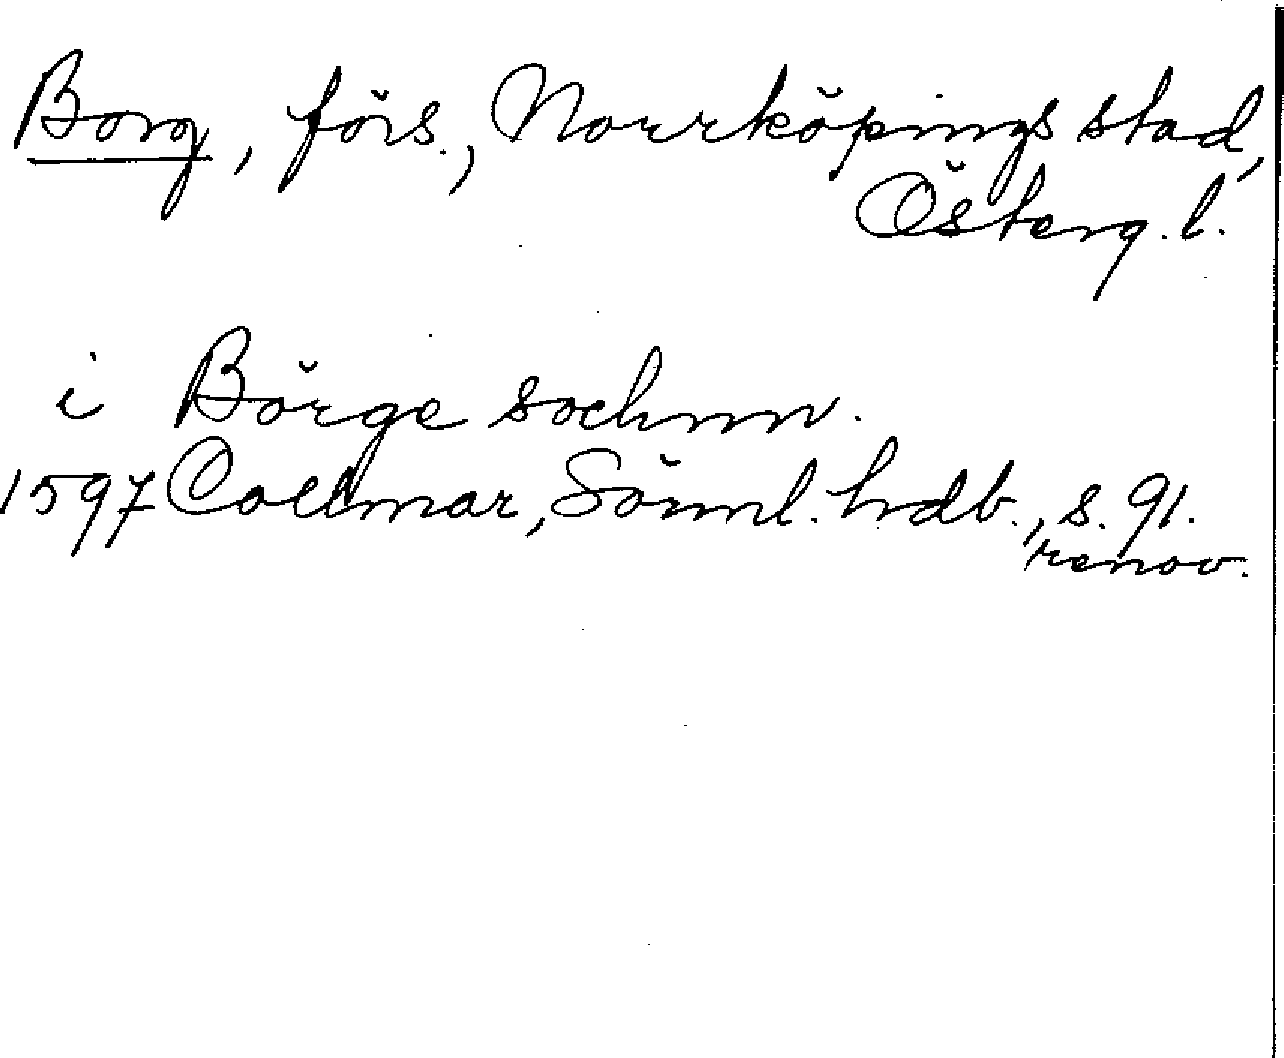 Borg, förs., Norrköpings stad,
Österg.l.
i Börge sochnn.
1597 Collmar, Sörml. hdb., s. 91.
renov.